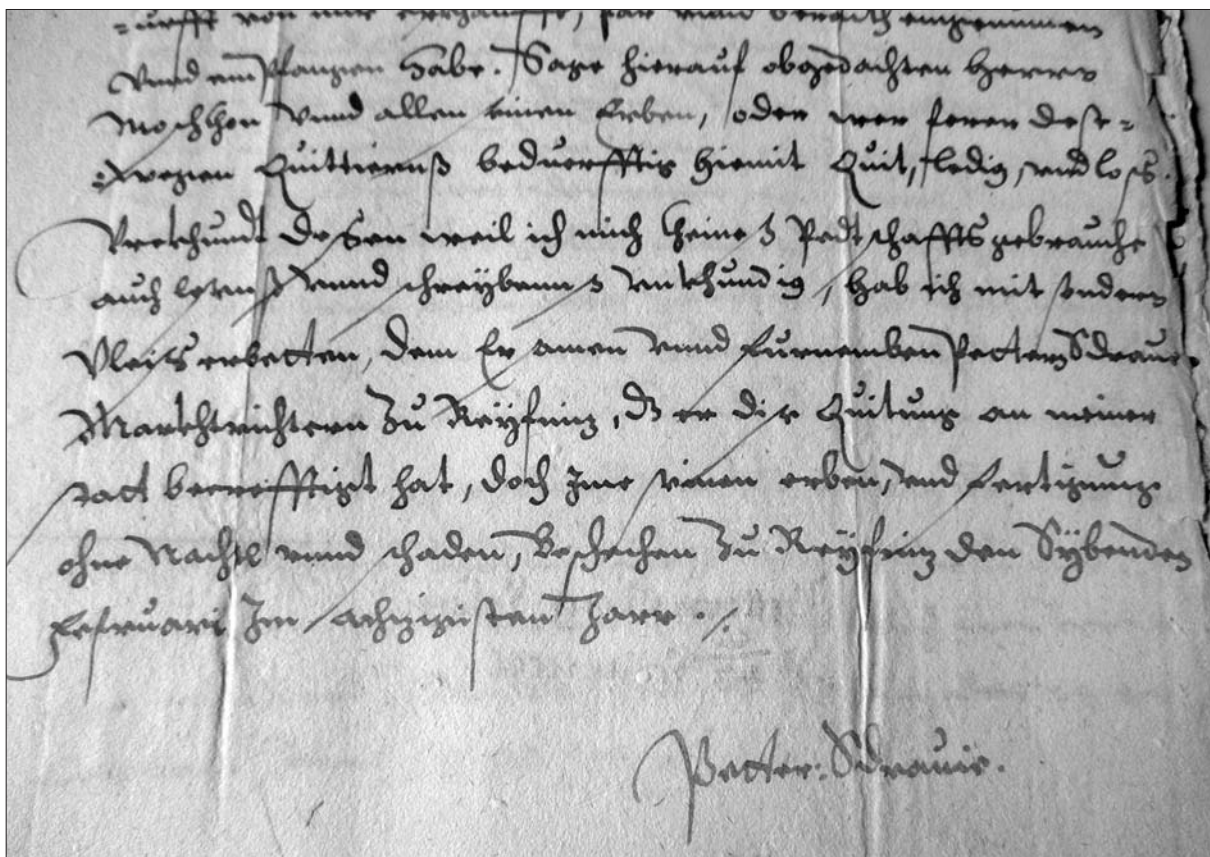 von mir erkhaufft, par vnnd beraith eingenummen
vnnd emPfangen habe. Sage hierauf obgedachten Herrn
Moschkon vnnd allen seinen Erben, oder wer ferer dess-
wegen Quittierns beduerfftig hiemit Quit, ledig, vnd loss.
Vrkhundt dessen weil ich mich kheines Pedtschaffts gebrauche
auch lesens vnnd schreybenns vnkhundig, hab ich mit sondern
Vleiss erbetten, dem Ersamen vnnd furnemben Petter Sdrauic
Markhtrichtern Zu Reyfniz, dz er dise Quitung an meiner
statt becrefftigt hat, doch Jme seinen erben, vnd fertigung
ohne Nachtl vnnd schaden, Beschechen Zu Reyfniz den Sybenden
februari Jm achzigisten Jarr ./.
Petter: Sdrauic.